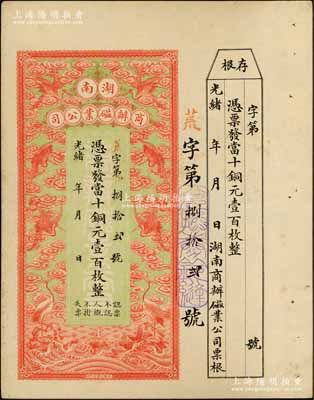 上海陽明拍賣
湖南
商辦磁業公司
荒字第捌拾弍號
憑票發當十銅元壹百枚整
光緒 年 月 日
認票不認人
失票不掛
荒字第捌拾弍號
存根
字第 號
憑票發當十銅元壹百枚整
光緒 年 月 日湖南商辦磁業公司票根
上海陽明拍賣